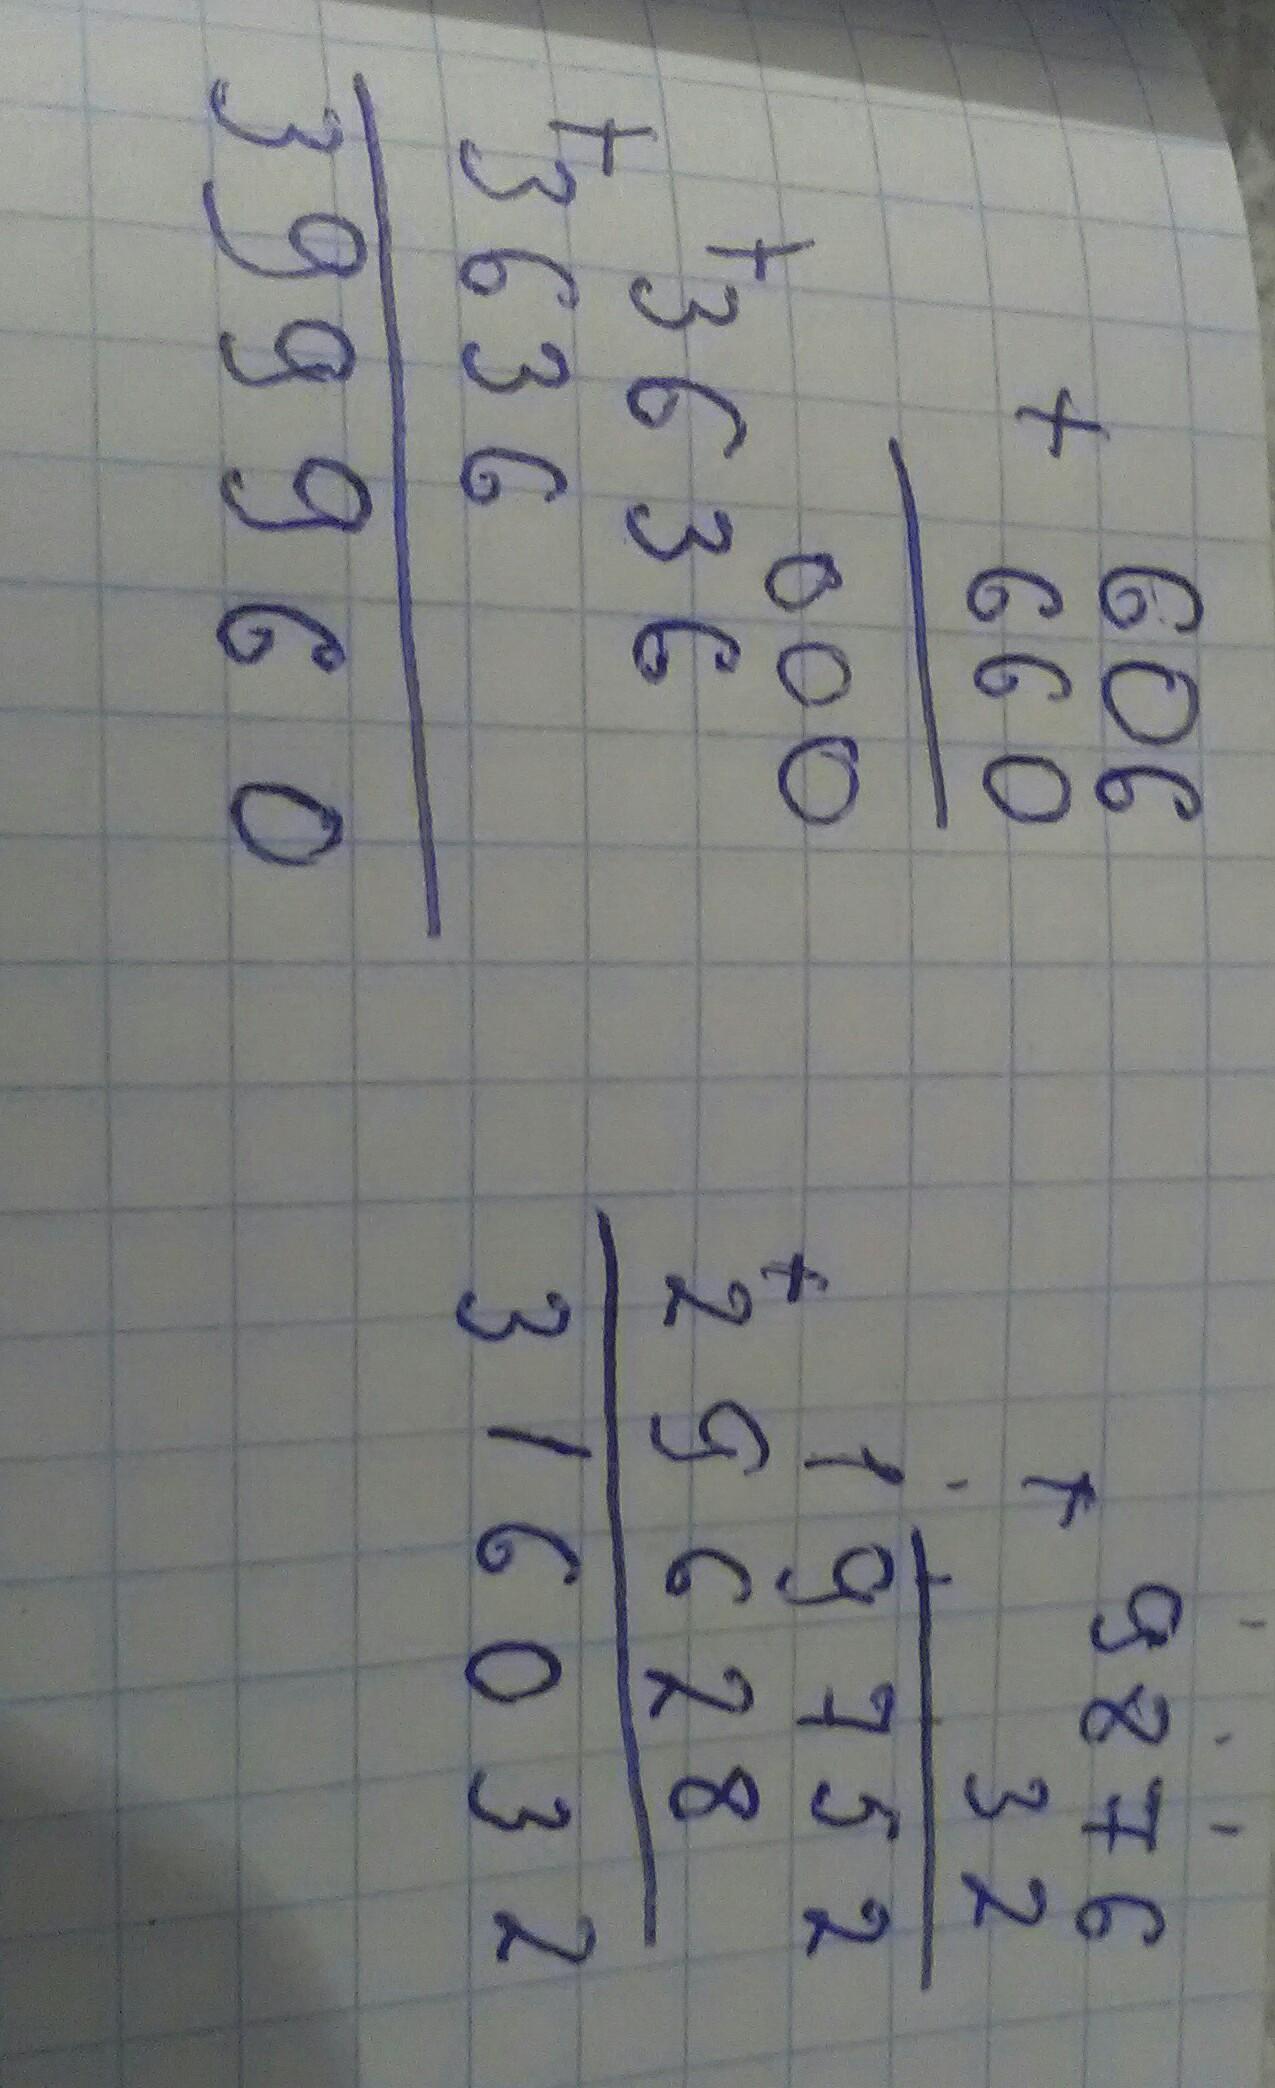 606
+ 660
000
+ 3636
+ 3636
399960
9876
+ 32
19752
+ 29628
316032